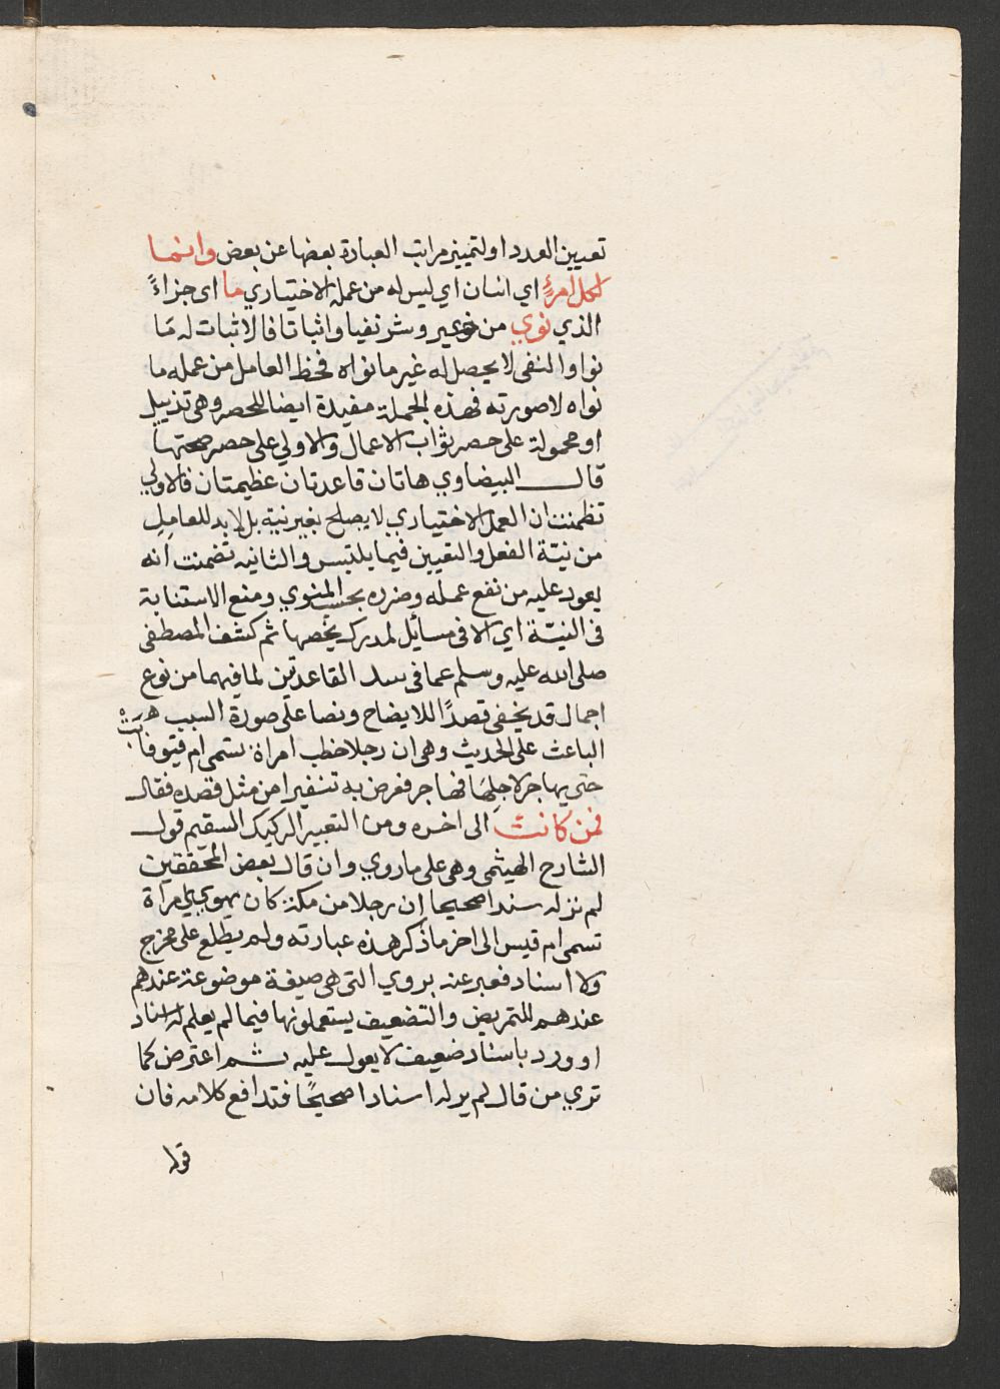 تعيين العدد او لتمييز مراتب العبادة بعضها عن بعض وانما
لكل امرئ اي انسان اي ليس له من عمله الاختياري ما اى جزاءً
الذي نوي من خير وشر نفيا واثباتا فالاثبات له مَا
نواه والنفى لا يحصل له غير ما نواه فحظ العامل من عمله ما
نواه لا صورته فهذه الجملة مفيدة ايضا للحصر وهى تذييل
او محمولة على حصر ثواب الاعمال والاولي على حصر صحتها
قال البيضاوي هاتان قاعدتان عظيمتان فالاولي
تظمنت ان العمل الاختياري لا يصلح بغير نية بل لا بد للعامِلِ
من نيّة الفعل والتعيين فيما يلتبس والثانيه تضمنت انه
يعود عليه من نفع عمله وضرره بحسب المنوي ومنع الاستنابة
فى النيّة اي الا فى مسائل لمدرك يخصها ثم كشف المصطفى
صلى الله عليه وسلم عما فى القاعدتين لما فيهما من نوع
اجمال قد يخفى قصدًا للايضاح ونصا على صورة السبب
الباعث على الحديث وهى ان رجلا خطب امراة تسمى ام قيس فابت
حتى يهاجر لاجلِهَا فهاجر فعرض به تنفيرا من مثل قصده فقال
فمن كانت الى اخره ومن التعبير الركيك السقيم قول
الشارح الهيثمى وهى على ما روي وان قال بعض المحققين
لم نر له سندا صحيحا ان رجلا من مكة كان يهوي امراة
تسمى ام قيس الى اخر ما ذكر هذه عبارته ولم يطلع على مخرج
ولا اسناد فعبر عنه بروي التى هى صيغة موضوعة عندهم
عندهم للتمريض والتضعيف يستعملونها فيما لم يعلم له اسناد
او ورد باسناد ضعيف لا يعول عليه ثم اعترض كما
تري من قال لم ير له اسنادا صحيحًا فتدافع كلامه فان
قوله